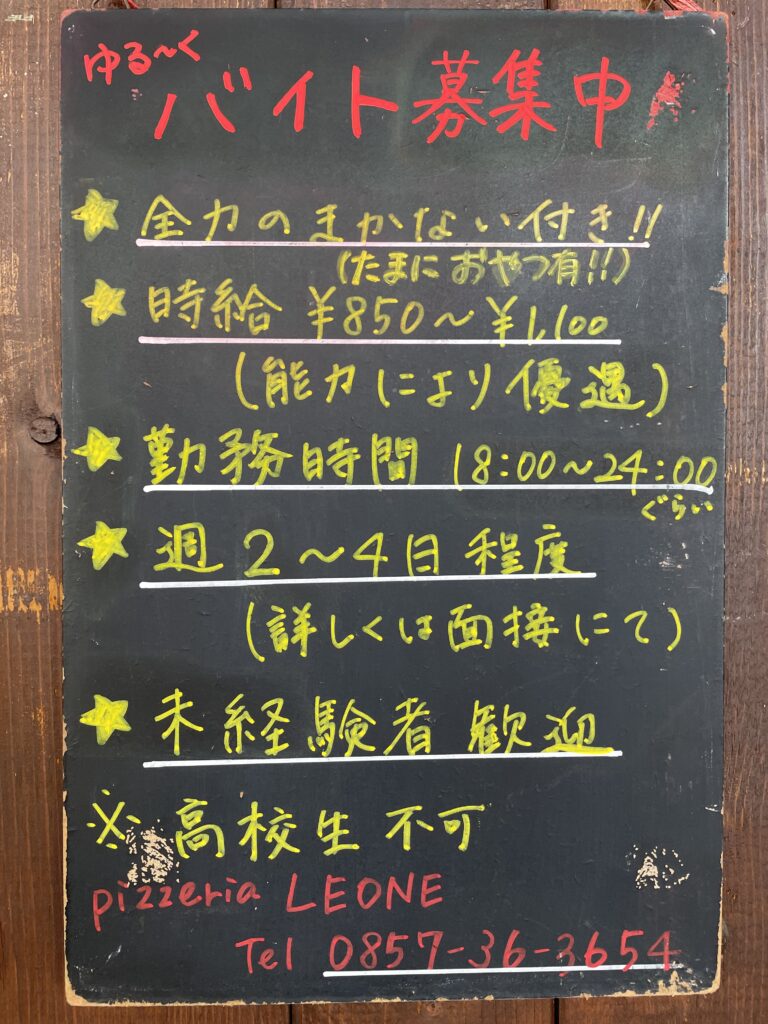 ゆる〜く
バイト募集中
★ 全力のまかない付き!!
(たまに おやつ有!!)
★ 時給 ¥850〜¥1,100
(能力により優遇)
★ 勤務時間 18:00〜24:00
ぐらい
★ 週2〜4日程度
(詳しくは面接にて)
★ 未経験者 歓迎
※ 高校生 不可
pizzeria LEONE
Tel 0857-36-3654